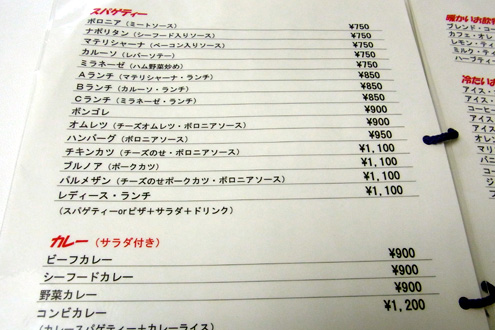 スパゲティー
ボロニア（ミートソース） ¥750
ナポリタン（シーフード入りソース） ¥750
マテリシャーナ（ベーコン入りソース） ¥750
カルーソ（レバーソテー） ¥750
ミラネーゼ（ハム野菜炒め） ¥750
Aランチ（マテリシャーナ・ランチ） ¥850
Bランチ（カルーソ・ランチ） ¥850
Cランチ（ミラネーゼ・ランチ） ¥850
ボンゴレ ¥900
オムレツ（チーズオムレツ・ボロニアソース） ¥900
ハンバーグ（ボロニアソース） ¥950
チキンカツ（チーズのせ・ボロニアソース） ¥1,100
ブルノア（ポークカツ） ¥1,100
パルメザン（チーズのせポークカツ・ボロニアソース） ¥1,100
レディース・ランチ ¥1,100
（スパゲティーorピザ＋サラダ＋ドリンク）
カレー（サラダ付き）
ビーフカレー ¥900
シーフードカレー ¥900
野菜カレー ¥900
コンビカレー ¥1,200
（カレースパゲティー＋カレーライス）
暖かいお飲
ブレンド・コー
カフェ・オレ
レモン・ティ
ミルク・テ
ハーブティ
冷たいお
アイス・
アイス・
コーヒー
アイス
アイス
オレン
マリ
パ